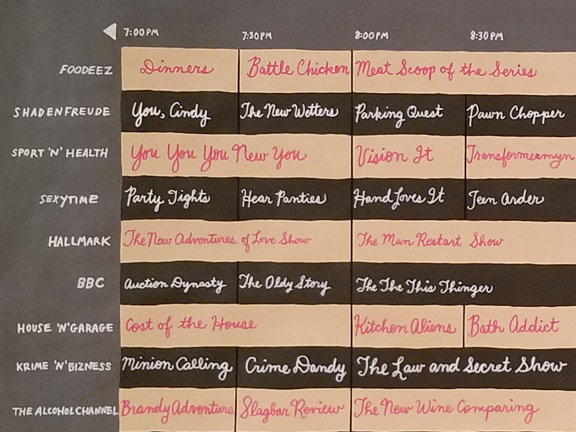 7:00PM 7:30PM 8:00PM 8:30PM
FOODEEZ Dinners Battle Chicken Meat Scoop of the Series
SHADENFREUDE You, Cindy The New Wetters Parking Quest Pawn Chopper
SPORT 'N' HEALTH You You You New You Vision It Transformermyn
SEXYTIME Party Tights Hear Panties Hand Loves It Teen Arder
HALLMARK The New Adventures of Love Show The Man Restart Show
BBC Auction Dynasty The Oldy Story The The This Thinger
HOUSE 'N' GARAGE Cost of the House Kitchen Aliens Bath Addict
KRIME 'N' BIZNESS Minion Calling Crime Dandy The Law and Secret Show
THE ALCOHOL CHANNEL Brandy Adventure Slagbar Review The New Wine Comparing